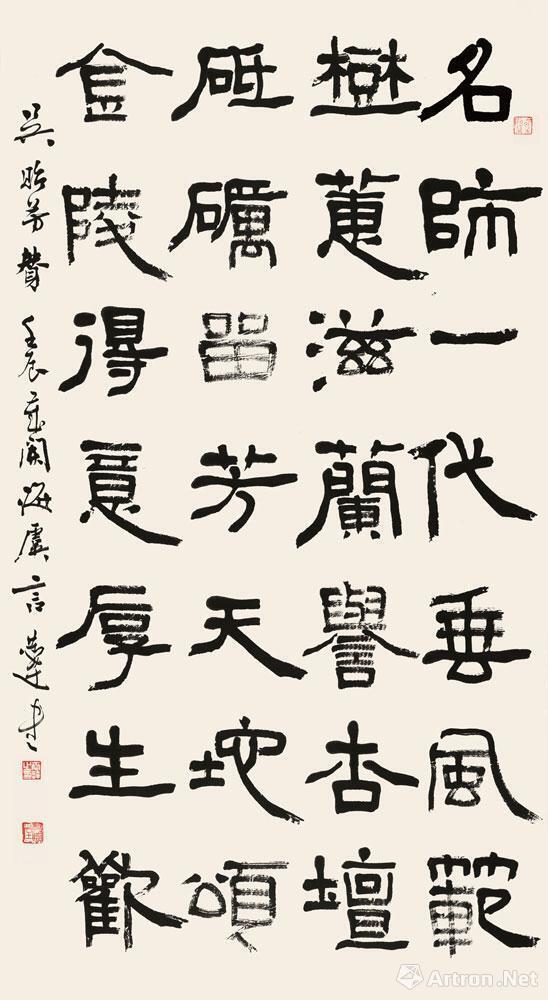 名師一代垂風範
樹蕙滋蘭譽杏壇
砥礪留芳天地頌
金陵得意厚生歡
吳貽芳贊 壬辰歲闌海虞言恭達書
Artron.Net